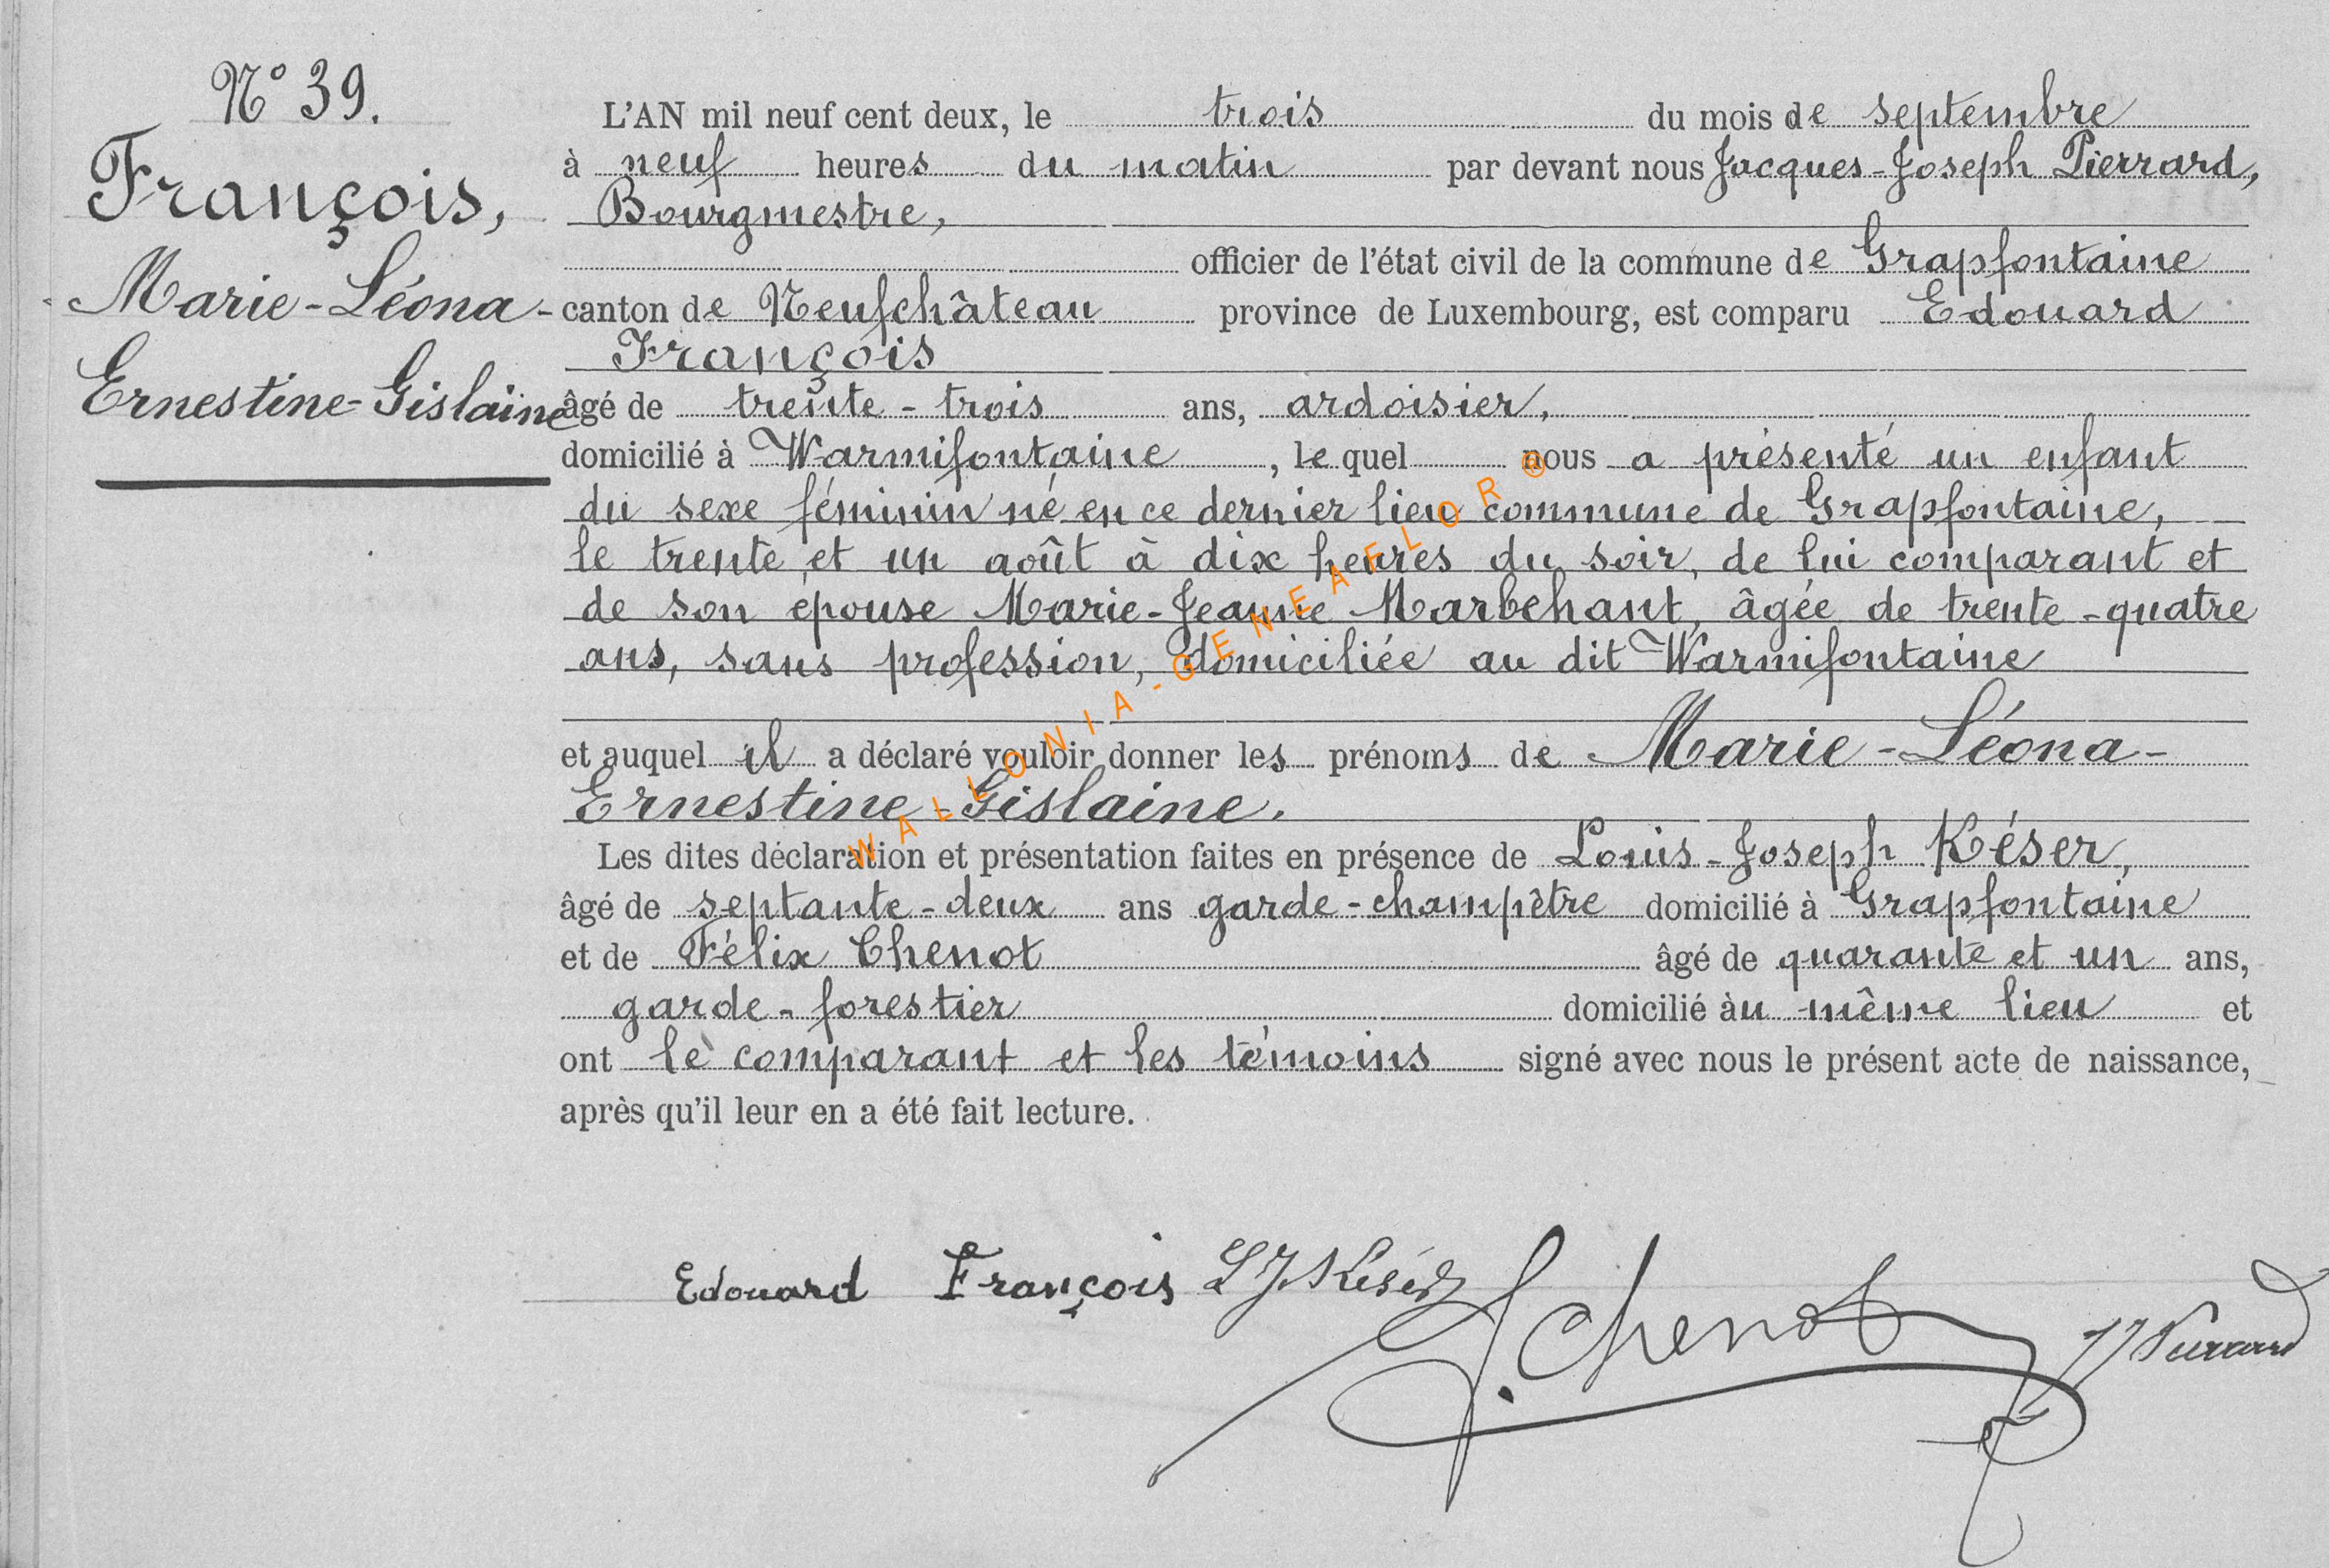 N° 39.
François,
Marie-Léona-
Ernestine-Gislaine
L'AN mil neuf cent deux, le trois du mois de septembre
à neuf heures du matin par devant nous Jacques-Joseph Pierrard,
Bourgmestre,
officier de l'état civil de la commune de Grapfontaine
canton de Neufchâteau province de Luxembourg, est comparu Edouard
François
âgé de trente-trois ans, ardoisier,
domicilié à Warmifontaine, lequel nous a présenté un enfant
du sexe féminin né en ce dernier lieu commune de Grapfontaine,
le trente et un août à dix heures du soir, de lui comparant et
de son epouse Marie-Jeanne Marbehant, âgée de trente-quatre
ans, sans profession, domiciliée au dit Warmifontaine
et auquel il a déclaré vouloir donner les prénoms de Marie-Léona-
Ernestine-Gislaine.
Les dites déclaration et présentation faites en présence de Louis-Joseph Késer,
âgé de septante-deux ans garde-champêtre domicilié à Grapfontaine
et de Félix Chenot âgé de quarante et un ans,
garde-forestier domicilié àu même lieu et
ont le comparant et les témoins signé avec nous le présent acte de naissance,
après qu'il leur en a été fait lecture.
Edouard François LJ Késer F. Chenot JJ Pierrard
WALLONIA-GENEAFLOR®